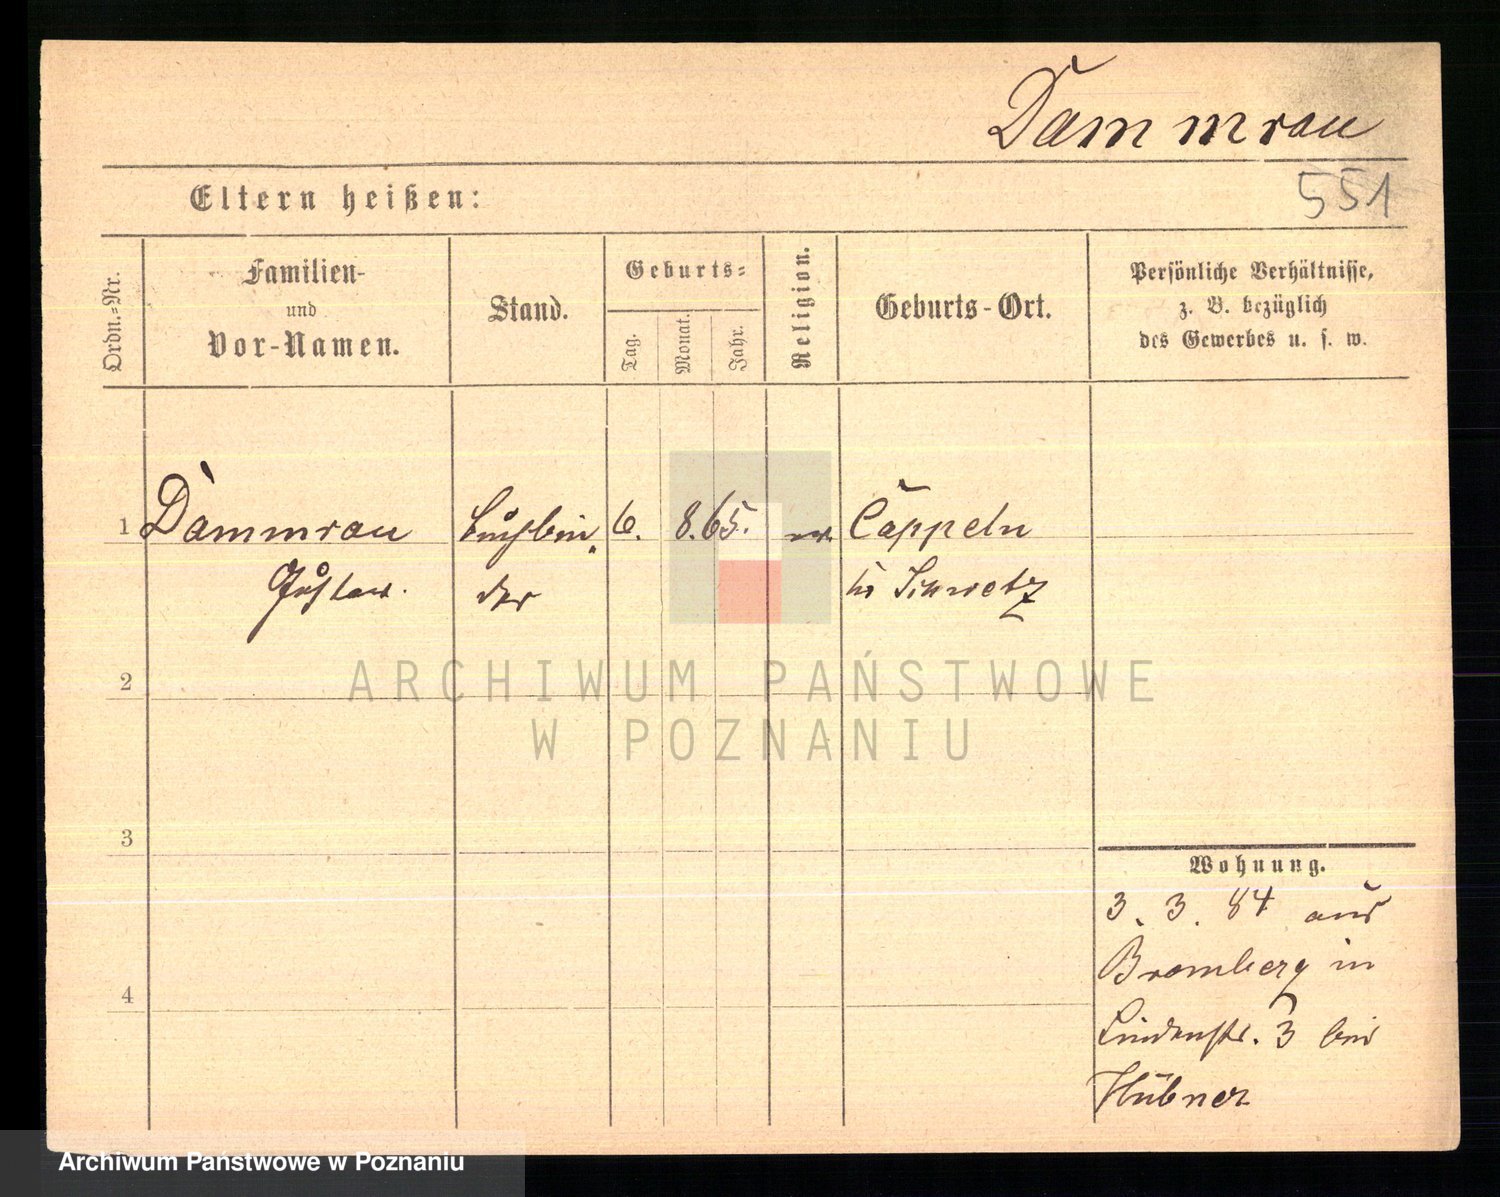 Dammrau
Eltern heißen:
551
Ordn.-Nr.
Familien-
und
Vor-Namen.
Stand.
Geburts-
Tag.
Monat.
Jahr.
Religion.
Geburts-Ort.
Persönliche Verhältnisse,
z. B. bezüglich
des Gewerbes u. s. w.
1 Dammrau Buchbin 6. 8. 65. ev. Cappeln
Gustav. der Schwetz
2
ARCHIWUM PAŃSTWOWE
W POZNANIU
3
Wohnung.
3. 3. 84 aus
Bromberg in
4
Lindenstr. 3 bei
Hübner
Archiwum Państwowe w Poznaniu